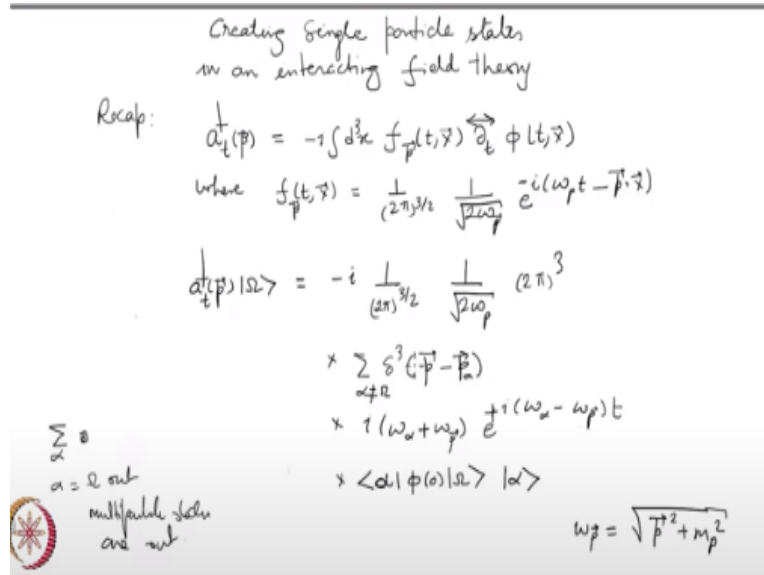 Creating Single particle states
in an interacting field theory
Recap: a†_t(p⃗) = -i ∫d³x f_p⃗(t,x⃗) ∂↔_t ϕ(t,x⃗)
where f_p⃗(t,x⃗) = 1/(2π)^{3/2} 1/√(2ω_p) e^{-i(ω_p t - p⃗·x⃗)}
a†_t(p⃗)|Ω> = -i 1/(2π)^{3/2} 1/√(2ω_p) (2π)³
× Σ_{α≠Ω} δ³(p⃗ - p⃗_α)
× i(ω_α + ω_p) e^{+i(ω_α - ω_p)t}
× <α|ϕ(0)|Ω> |α>
Σ_α
α = Ω out
multiparticle states
are out
ω_p⃗ = √(p⃗² + m_p²)